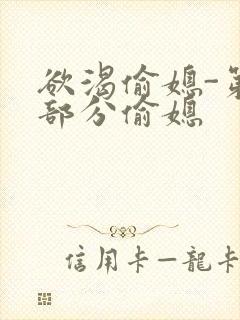 欲渴偷媳-第
部分偷媳
信用卡—龍卡